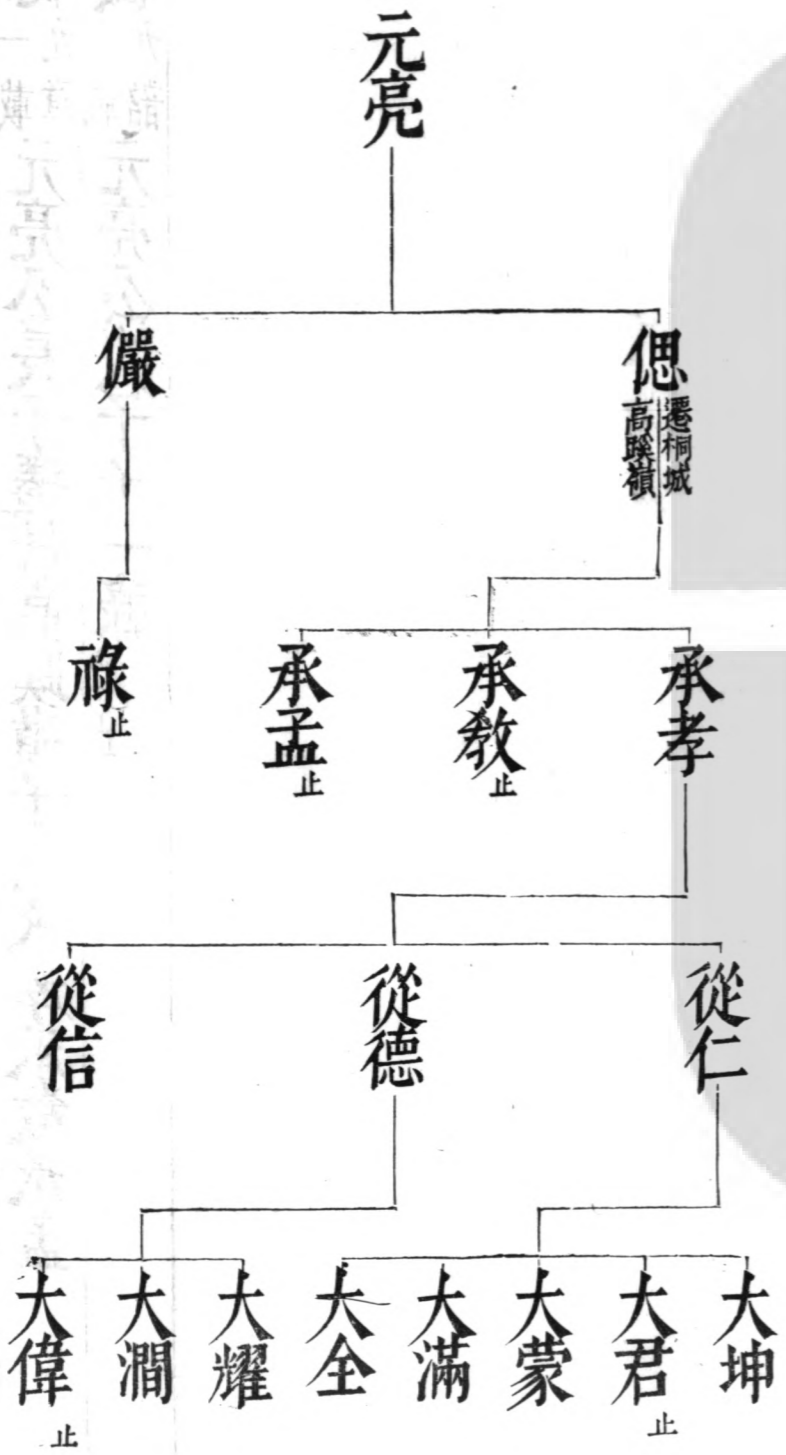 元亮
偲
遷桐城
高蹊嶺
儼
承孝
承教
止
承孟
止
祿
止
從仁
從德
從信
大坤
大君
止
大蒙
大滿
大全
大耀
大澗
大偉
止